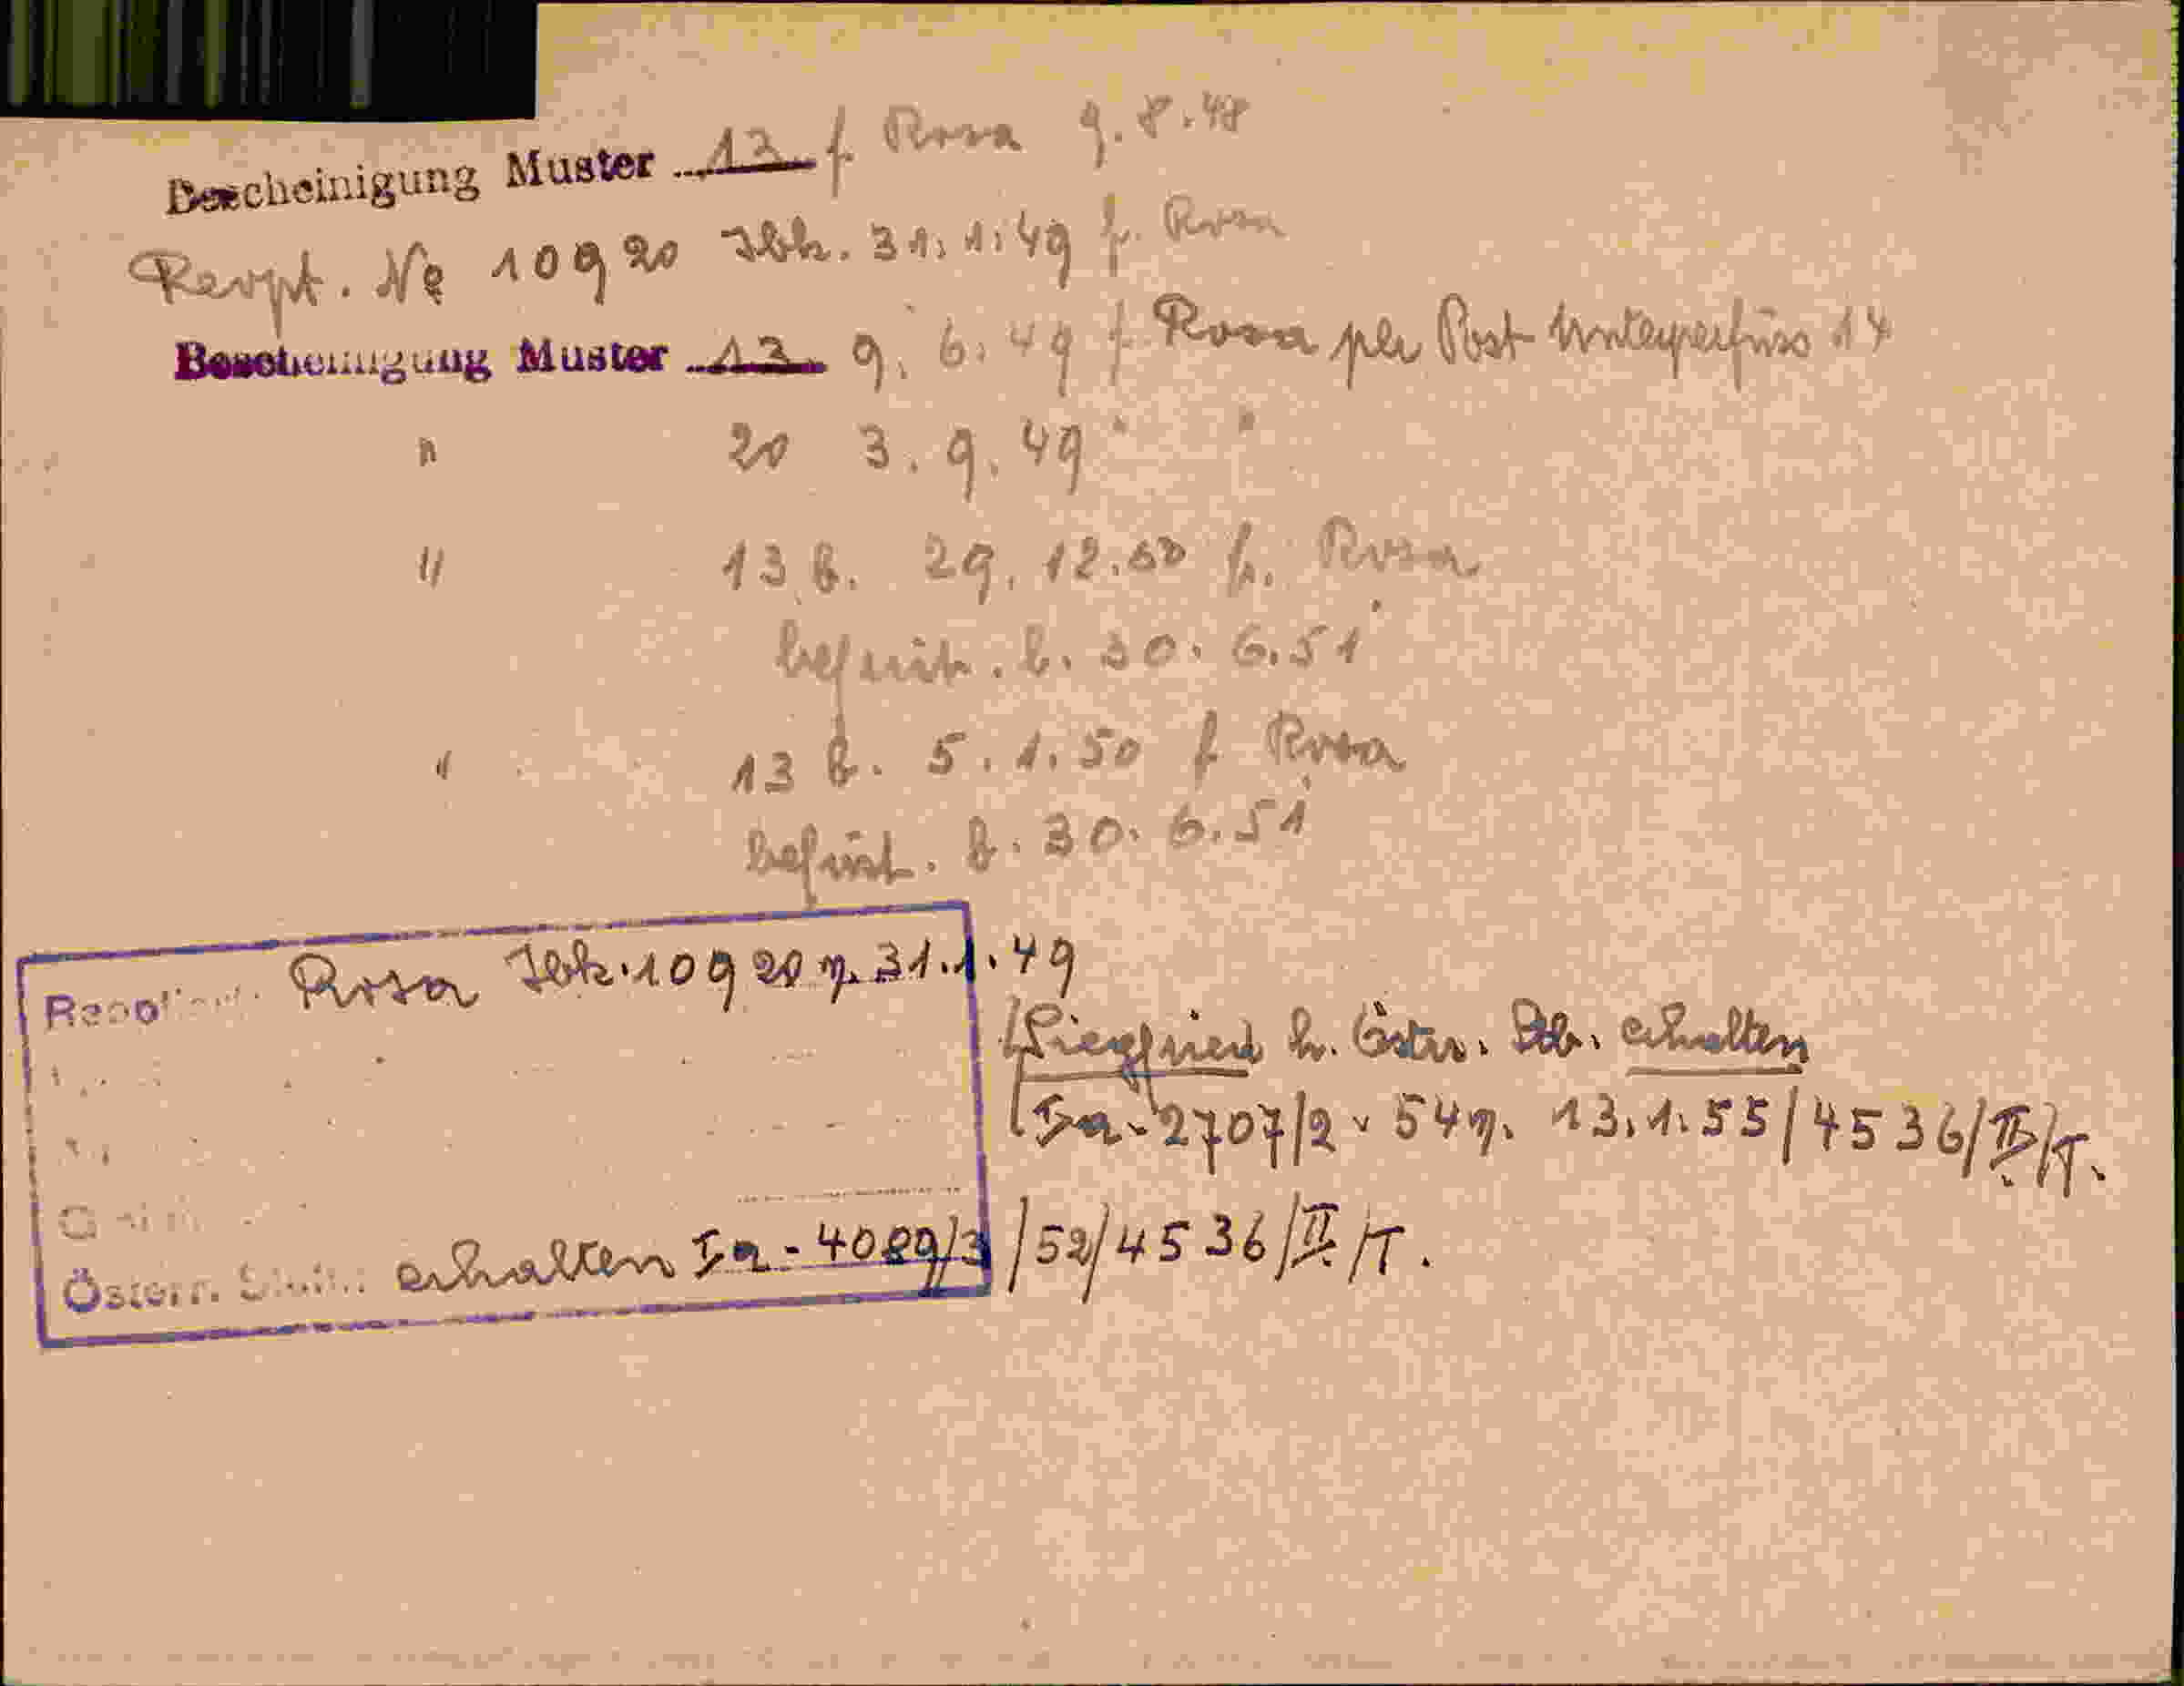 Bescheinigung Muster 13 f. Rosa 9.8.48
Rempt. No 10920 Ibk. 31.1.49 f. Rosa
Bescheinigung Muster 13 9.6.49 f Rosa per Post Unterperfuss 14
" 20 3.9.49 " "
" 13 b. 29.12.50 f. Rosa
befrist. b. 30.6.51
" 13 b. 5.1.50 f Rosa
befrist. b. 30.6.51
Rosa Ibk. 10920 v. 31.1.49
Siegfried h. Östr. Stb. erhalten
Ia-2707/2 v 54 v. 13.1.55/4536/II/T.
Österr. erhalten Ia-4089/3/52/4536/II/T.